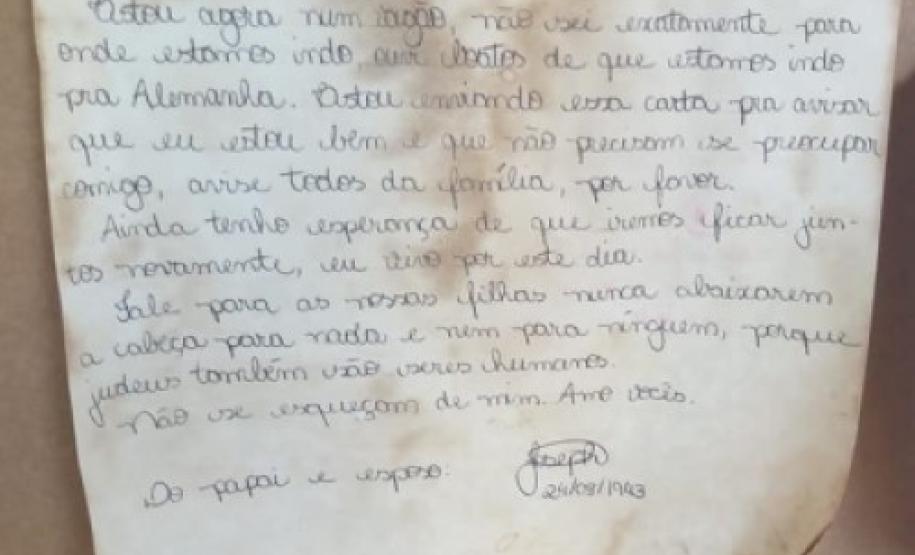 Estou agora num vagão, não sei exatamente para
onde estamos indo, ouvi boatos de que estamos indo
pra Alemanha. Estou enviando essa carta pra avisar
que eu estou bem e que não precisam se preocupar
comigo, avise todos da família, por favor.
Ainda tenho esperança de que iremos ficar jun-
tos novamente, eu vivo por este dia.
Fale para as nossas filhas nunca abaixarem
a cabeça para nada e nem para ninguém, porque
judeus também são seres humanos.
Não se esqueçam de mim. Amo vocês.
Do papai e esposo:
Joseph
24/09/1943